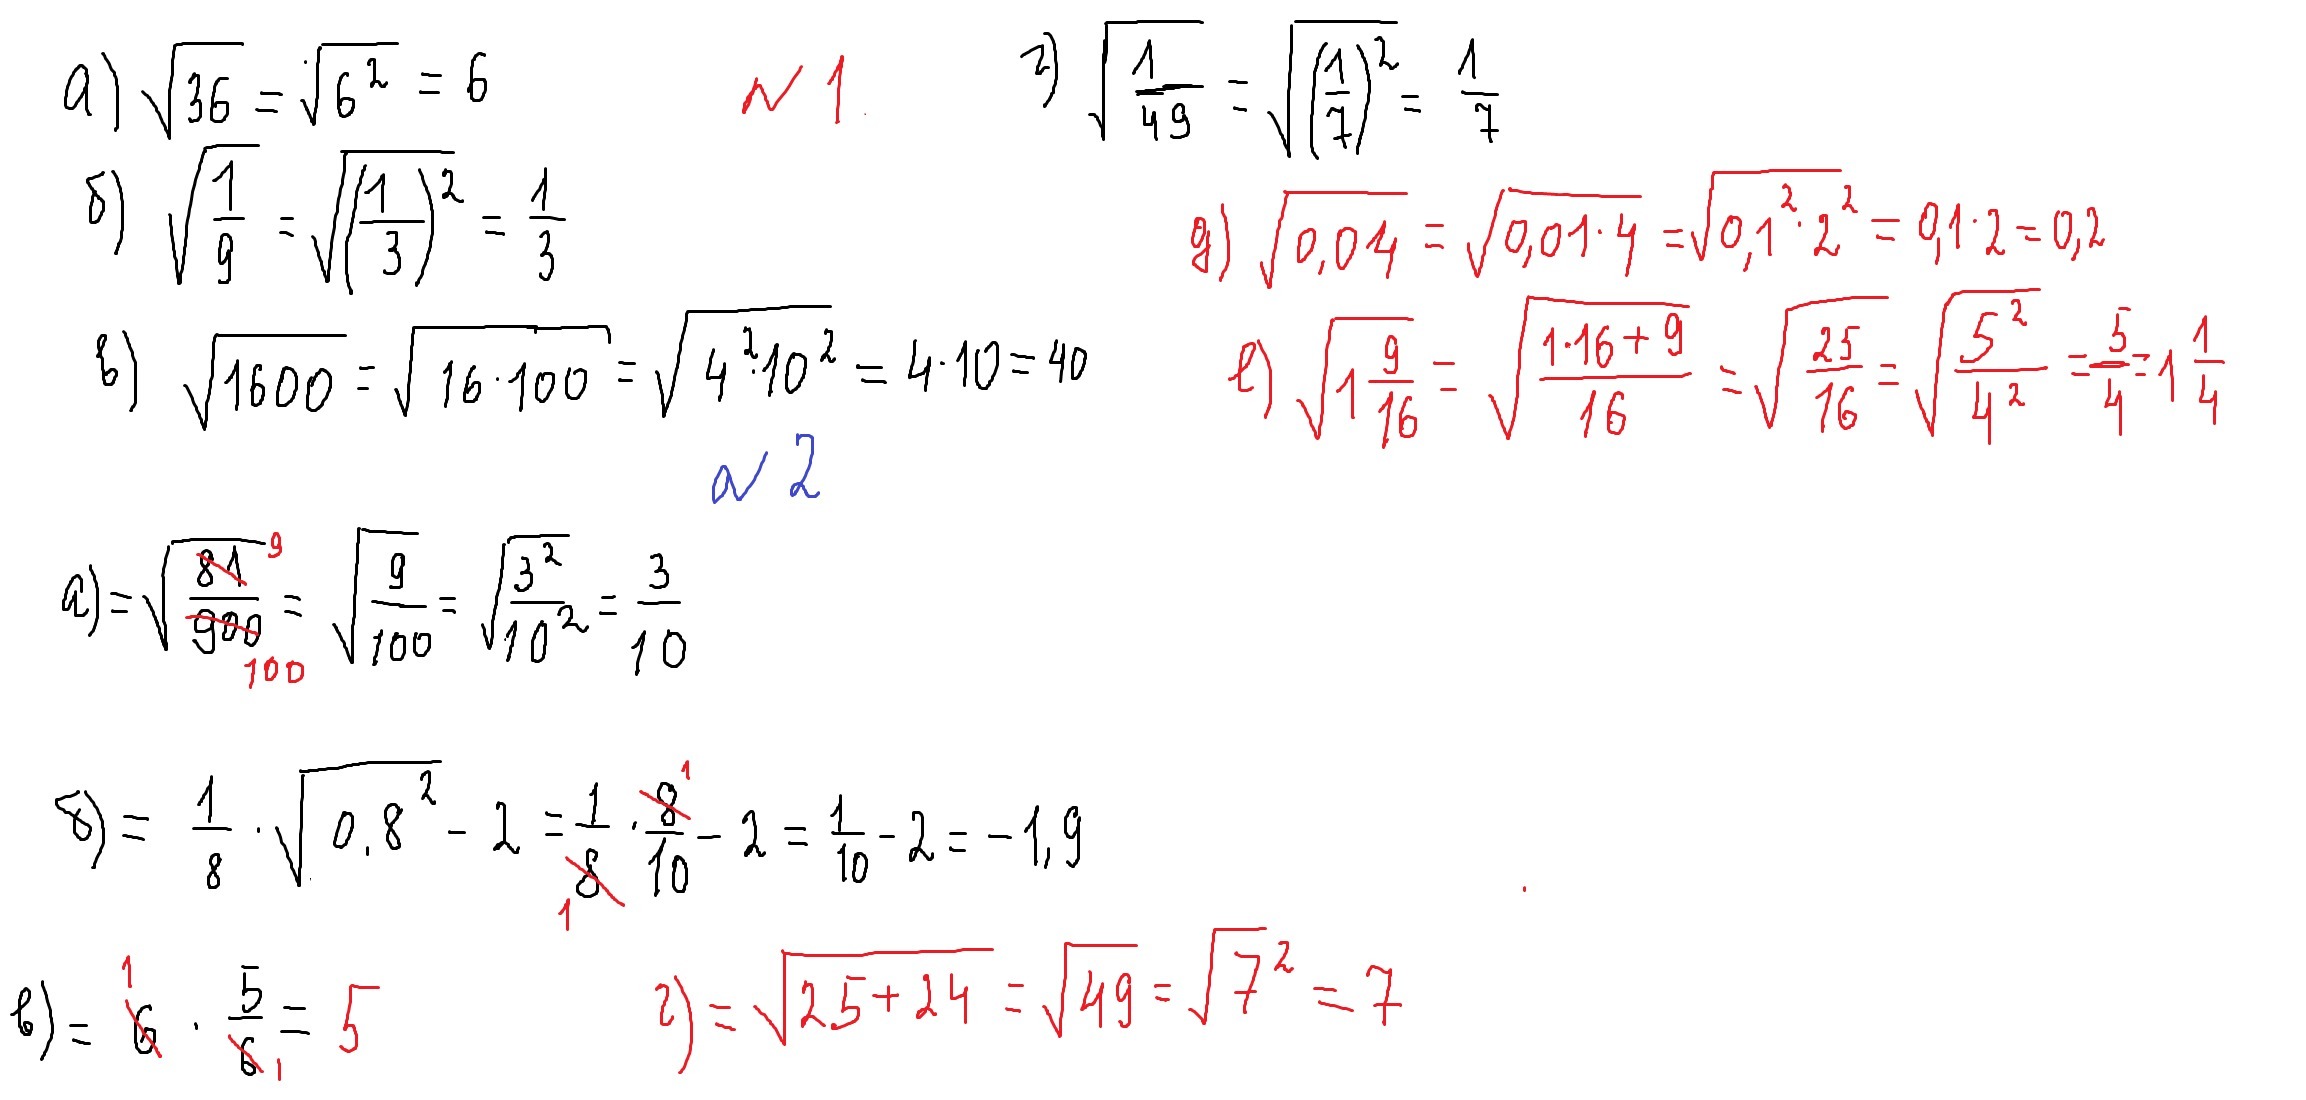 а) √36 = √6² = 6
№ 1
б) √(1/9) = √((1/3)²) = 1/3
в) √1600 = √(16·100) = √(4²·10²) = 4·10 = 40
г) √(1/49) = √((1/7)²) = 1/7
д) √0,04 = √(0,01·4) = √(0,1²·2²) = 0,1·2 = 0,2
е) √(1 9/16) = √((1·16+9)/16) = √(25/16) = √(5²/4²) = 5/4 = 1 1/4
№ 2
а) = √(81/900) 9 100 = √(9/100) = √(3²/10²) = 3/10
б) = 1/8 · √0,8² - 2 = 1/8 · 8/10 1 1 - 2 = 1/10 - 2 = -1,9
в) = 6 · 5/6 1 1 = 5
г) = √(25+24) = √49 = √7² = 7